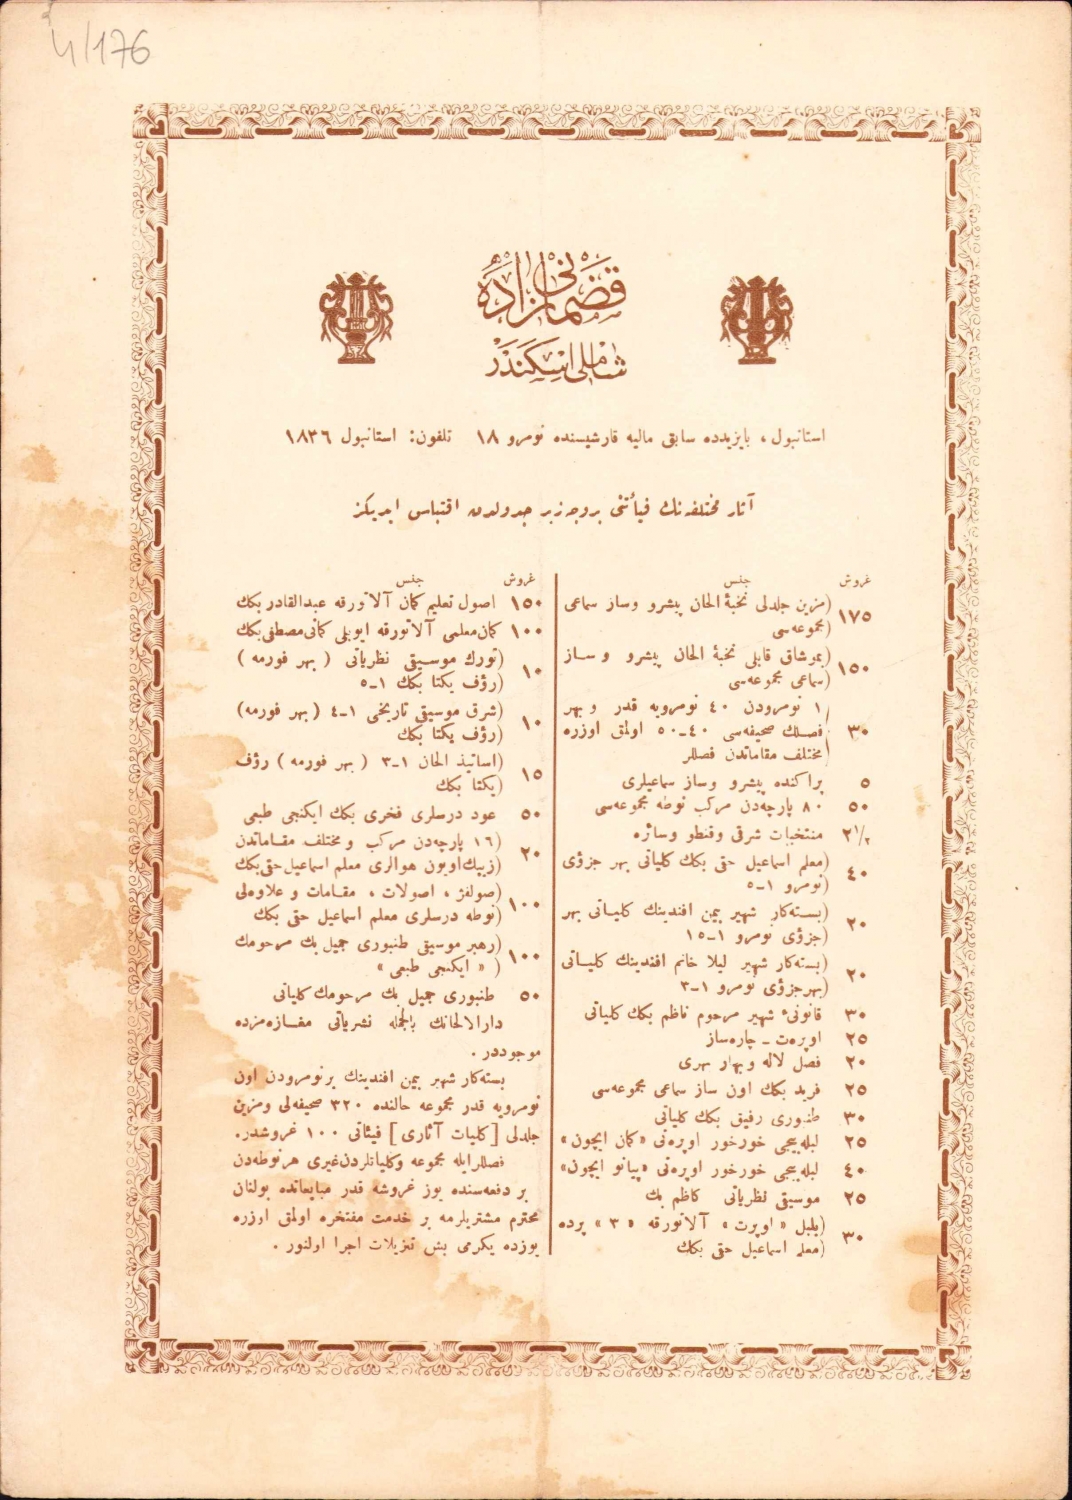 4/176
قضمانی زاده
شاملی اسکندر
استانبول، بایزیدده سابق مالیه قارشیسنده نومرو ۱۸ تلفون: استانبول ۱۸۳٦
آثار مختلفه‌نك فیأتنی بروجه زیر جدولدن اقتباس ایدیکز
غروش جنس
۱۷٥ (مزین جلدلی نخبهٔ الحان پیشرو وساز سماعی
(مجموعه‌سی
۱٥۰ (یموشاق قابلی نخبهٔ الحان پیشرو وساز
(سماعی مجموعه‌سی
۱ نومرودن ٤۰ نومرویه قدر وبهر
۳۰ فصلك صحیفه‌سی ٤۰-٥۰ اولمق اوزره
مختلف مقاماتدن فصللر
٥ پراکنده پیشرو وساز سماعیلری
٥۰ ۸۰ پارچه‌دن مرکب نوطه مجموعه‌سی
۲۱/۲ منتخبات شرقی وقنطو وسائره
٤۰ (معلم اسماعیل حقی بکك کلیاتی بهر جزؤی
(نومرو ۱-٥
۲۰ (بسته‌کار شهیر بیمن افندینك کلیاتی بهر
(جزؤی نومرو ۱-۱٥
۲۰ (بسته‌کار شهیر لیلا خانم افندینك کلیاتی
(بهرجزؤی نومرو ۱-۳
۳۰ قانونیٔ شهیر مرحوم ناظم بکك کلیاتی
۲٥ اوپره‌ت - چاره‌ساز
۲۰ فصل لاله وبهار سهری
۲٥ فرید بکك اون ساز سماعی مجموعه‌سی
۳۰ طنبوری رفیق بکك کلیاتی
۲٥ لبله‌بیجی خورخور اوپره‌تی «کمان ایچون»
٤۰ لبله‌بیجی خورخور اوپره‌تی «پیانو ایچون»
۲٥ موسیقی نظریاتی کاظم بك
۳۰ (بلبل «اوپرت» آلاتورقه «۳» پرده
(معلم اسماعیل حقی بکك
غروش جنس
۱٥۰ اصول تعلیم کمان آلاتورقه عبدالقادر بکك
۱۰۰ کمان معلمی آلاتورقه ایوبلی کمانی مصطفی بکك
۱۰ (تورك موسیقی نظریاتی (بهر فورمه)
(رؤف یکتا بکك ۱-٥
۱۰ (شرق موسیقی تاریخی ۱-٤ (بهر فورمه)
(رؤف یکتا بکك
۱٥ (اساتیذ الحان ۱-۳ (بهر فورمه) رؤف
(یکتا بکك
٥۰ عود درسلری فخری بکك ایکنجی طبعی
۲۰ (۱٦ پارچه‌دن مرکب ومختلف مقاماتدن
(زیبك اویون هوالری معلم اسماعیل حقی بکك
۱۰۰ (صولفژ، اصولات، مقامات و علاوه‌لی
(نوطه درسلری معلم اسماعیل حقی بکك
۱۰۰ (رهبر موسیقی طنبوری جمیل بك مرحومك
( «ایکنجی طبعی»
٥۰ طنبوری جمیل بك مرحومك کلیاتی
دارالالحانك بالجمله نشریاتی مغازه‌مزده
موجوددر.
بسته‌کار شهیر بیمن افندینك برنومرودن اون
نومرویه قدر مجموعه حالنده ۳۲۰ صحیفه‌لی ومزین
جلدلی [کلیات آثاری] فیئاتی ۱۰۰ غروشدر.
فصللرایله مجموعه وکلیاتلردن غیری هرنوطه‌دن
بر دفعه‌سنده یوز غروشه قدر مبایعاتده بولنان
محترم مشتریلرمه بر خدمت مفتخره اولمق اوزره
یوزده یکرمی بش تنزیلات اجرا اولنور.